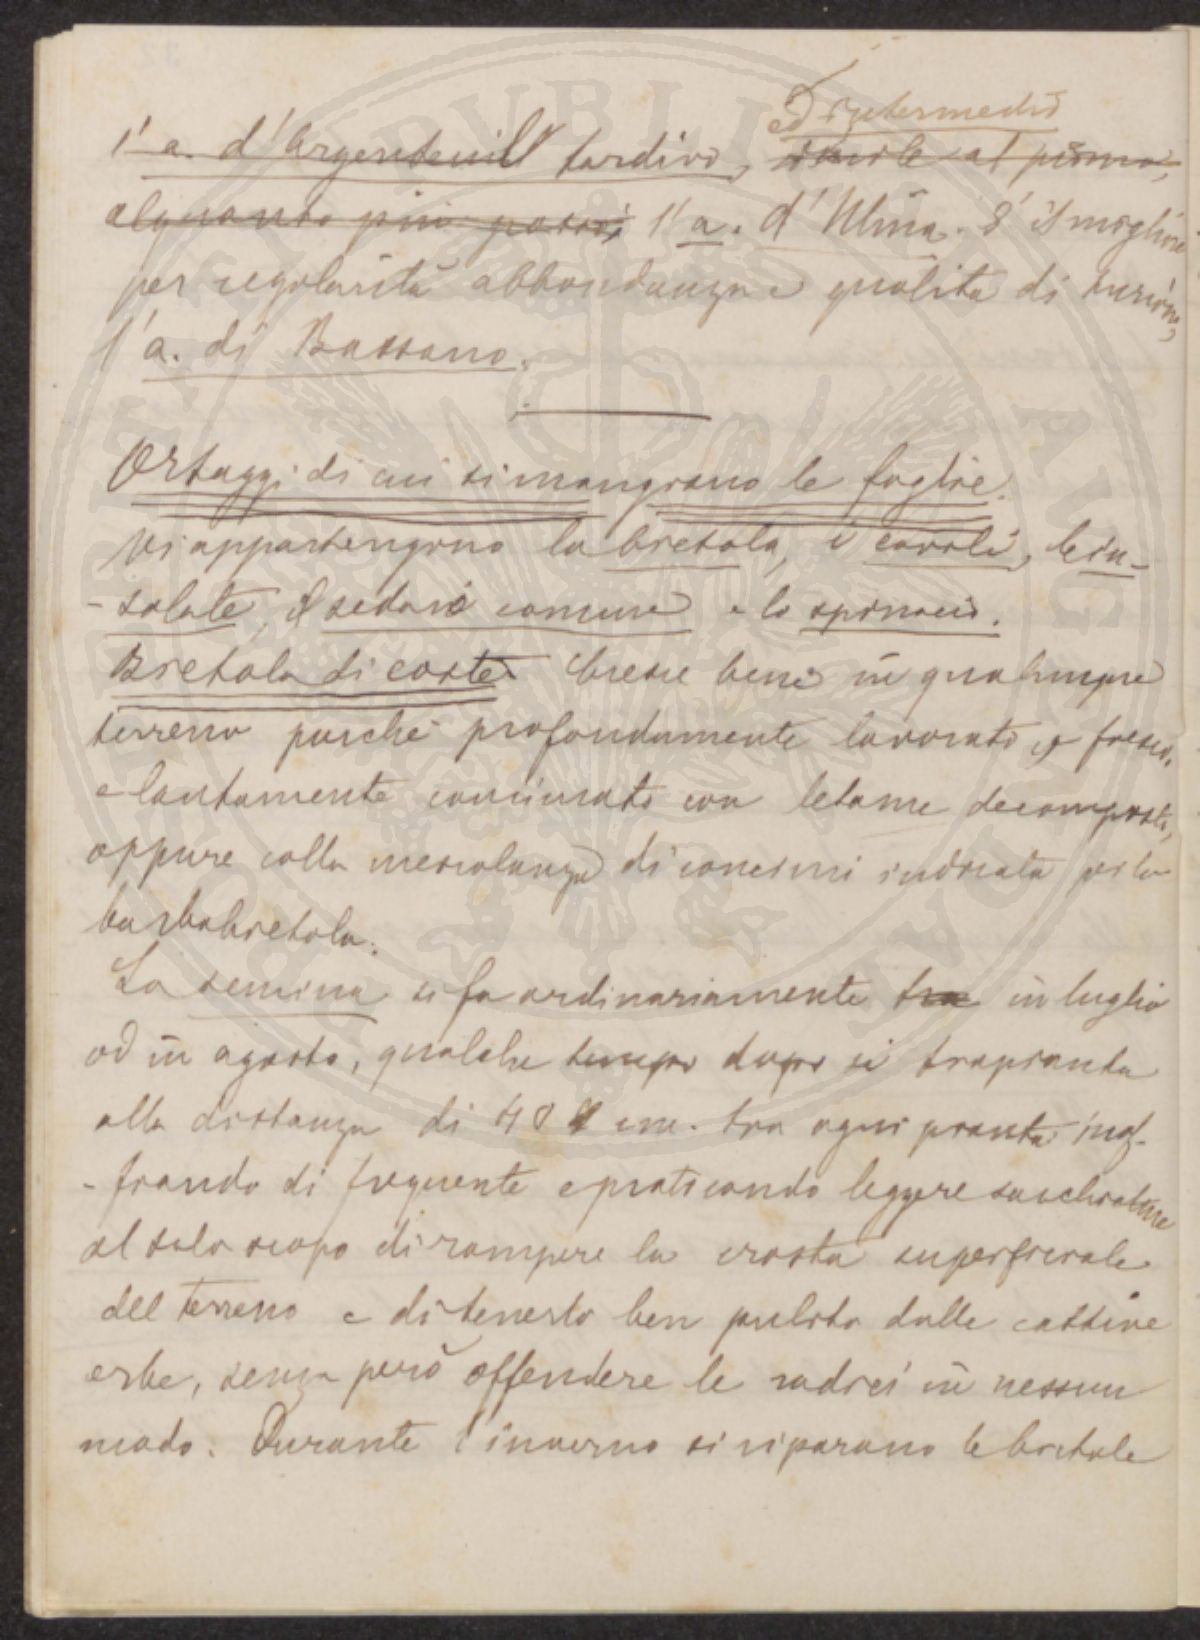 ed intermedio
l'a. d'Argenteuil tardivo, simile al primo,
alquanto più l'a. d'Ulma. È il migliore
per regolarità abbondanza e qualità di turioni,
l'a. di Bassano.
Ortaggi di cui si mangiano le foglie.
Vi appartengono la bietola, i cavoli, le in-
-salate, il sedano comune e lo spinacio.
Bietola di coste. Cresce bene in qualunque
terreno purchè profondamente lavorato e fresco,
e lautamente concimato con letame decomposto,
oppure colla mescolanza di concimi indicata per la
barbabietola.
La semina si fa ordinariamente tra in luglio
od in agosto, qualche tempo dopo si trapianta
alla distanza di 40 cm. tra ogni pianta inaf-
-fiando di frequente e praticando leggere sarchiature
al solo scopo di rompere la crosta superficiale
del terreno e di tenerlo ben pulito dalle cattive
erbe, senza però offendere le radici in nessun
modo. Durante l'inverno si riparano le bietole